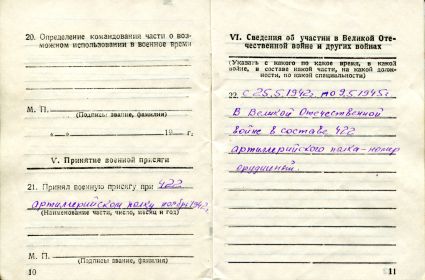 20. Определение командования части о воз-
можном использовании в военное время
М. П.
(Подпись звание, фамилия)
«      » 19      г.
V. Принятие военной присяги
21. Принял военную присягу при 422
артиллерийском полку ноябрь 194
(Наименование части, число, месяц и год)
М. П.
(Подпись звание, фамилия)
10
VI. Сведения об участии в Великой Оте-
чественной войне и других войнах
(Указать с какого по какое время, в какой
войне, в составе какой части, на какой долж-
ности, по какой специальности)
22. с 25.5.1942г. по 9.5.1945г.
В Великой Отечественной
войне в составе 422
артиллерийского полка - номер
орудийный.
11